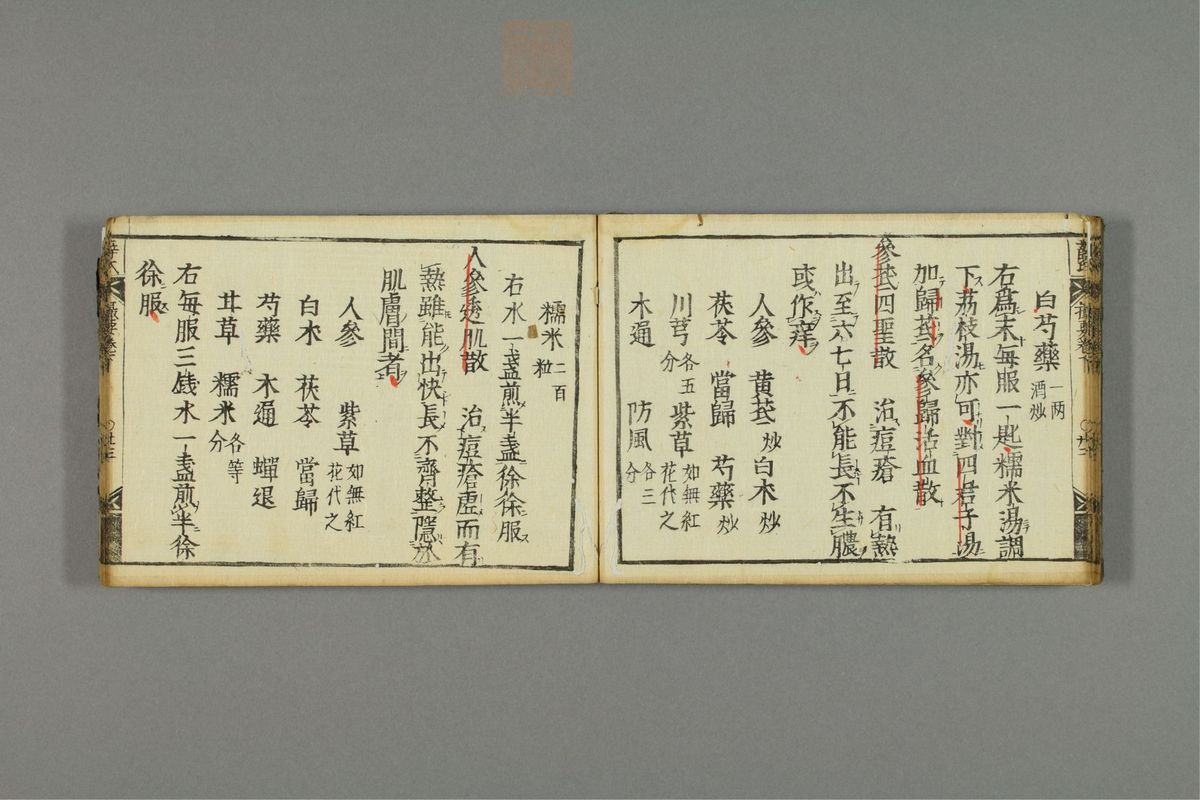 白芍藥 一两 酒炒
右爲末每服一匙糯米湯調
下荔枝湯亦可對四君子湯
加歸芪名參歸活血散
參芪四聖散 治痘瘡 有熱
出至六七日不能長不生膿
或作痒
人參 黄芪 炒 白朮 炒
茯苓 當歸 芍藥 炒
川芎 各五分 紫草 如無紅花代之
木通 防風 各三分
糯米 二百粒
右水一盞煎半盞徐徐服
人參透肌散 治痘瘡虚而有
熱雖能出快長不齊整隱於
肌膚間者
人參 紫草 如無紅花代之
白朮 茯苓 當歸
芍藥 木通 蟬退
甘草 糯米 各等分
右每服三錢水一盞煎半徐
徐服